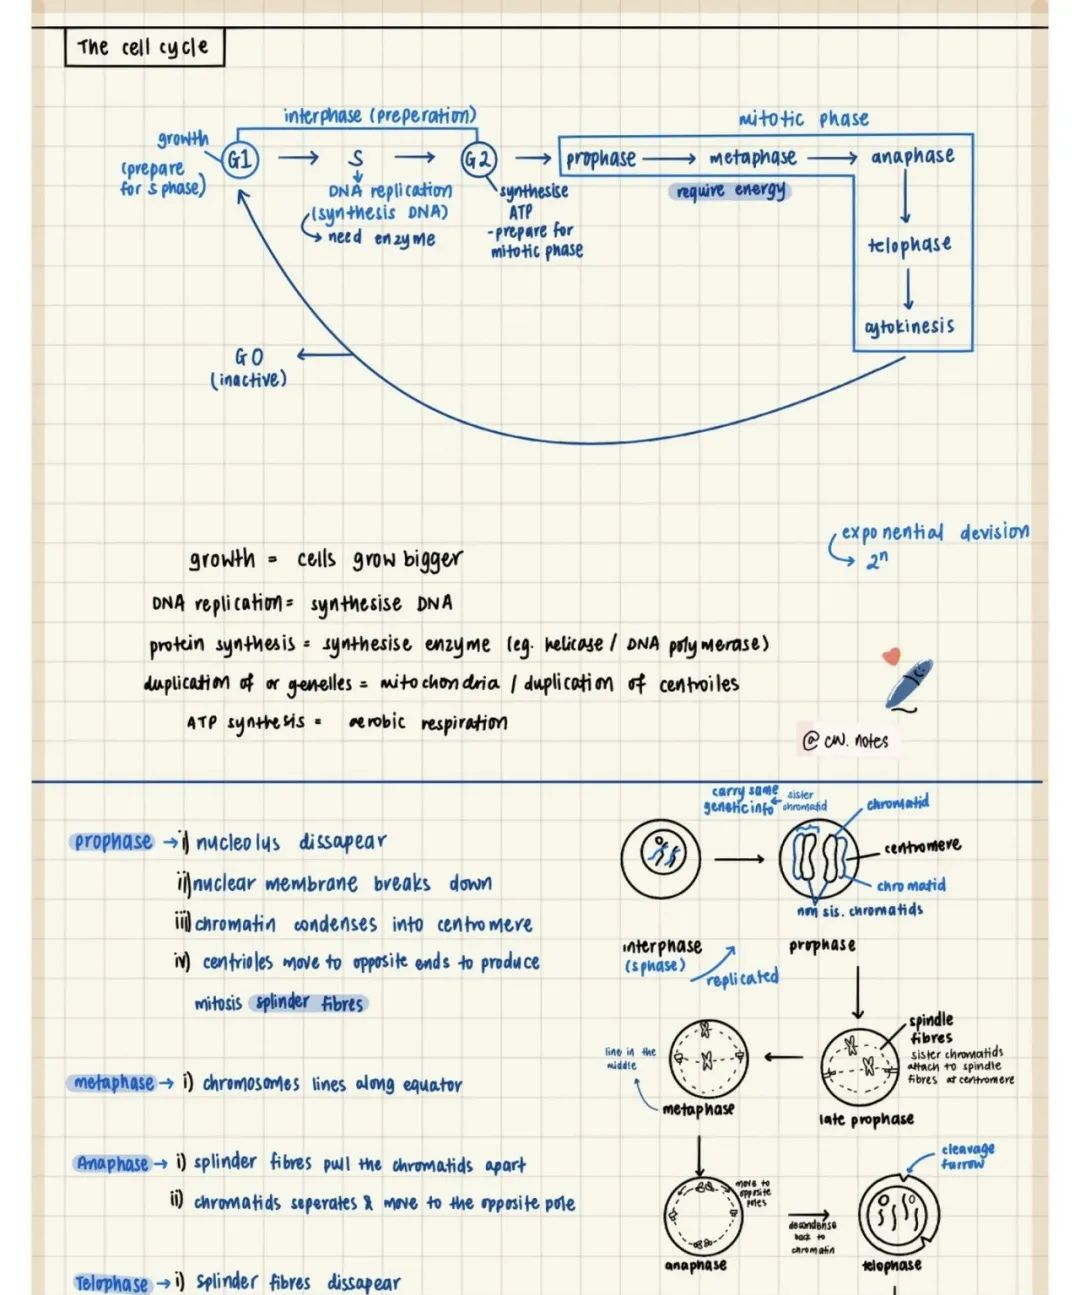 The cell cycle
interphase (preperation)
mitotic phase
growth
(prepare
for S phase)
G1
S
G2
prophase
metaphase
anaphase
DNA replication
(synthesis DNA)
need enzyme
synthesise
ATP
-prepare for
mitotic phase
require energy
telophase
cytokinesis
G0
(inactive)
exponential devision
2ⁿ
growth = cells grow bigger
DNA replication = synthesise DNA
protein synthesis = synthesise enzyme (eg. helicase / DNA polymerase)
duplication of organelles = mitochondria / duplication of centroiles
ATP synthesis = aerobic respiration
@ cw. notes
prophase → i) nucleolus dissapear
ii) nuclear membrane breaks down
iii) chromatin condenses into centromere
iv) centrioles move to opposite ends to produce
mitosis splinder fibres
metaphase → i) chromosomes lines along equator
Anaphase → i) splinder fibres pull the chromatids apart
ii) chromatids seperates & move to the opposite pole
Telophase → i) splinder fibres dissapear
carry same
genetic info
sister
chromatid
chromatid
centromere
chromatid
non sis. chromatids
interphase
(s phase)
replicated
prophase
spindle
fibres
sister chromatids
attach to spindle
fibres at centromere
late prophase
line in the
middle
metaphase
move to
opposite
poles
anaphase
decondense
back to
chromatin
cleavage
furrow
telophase